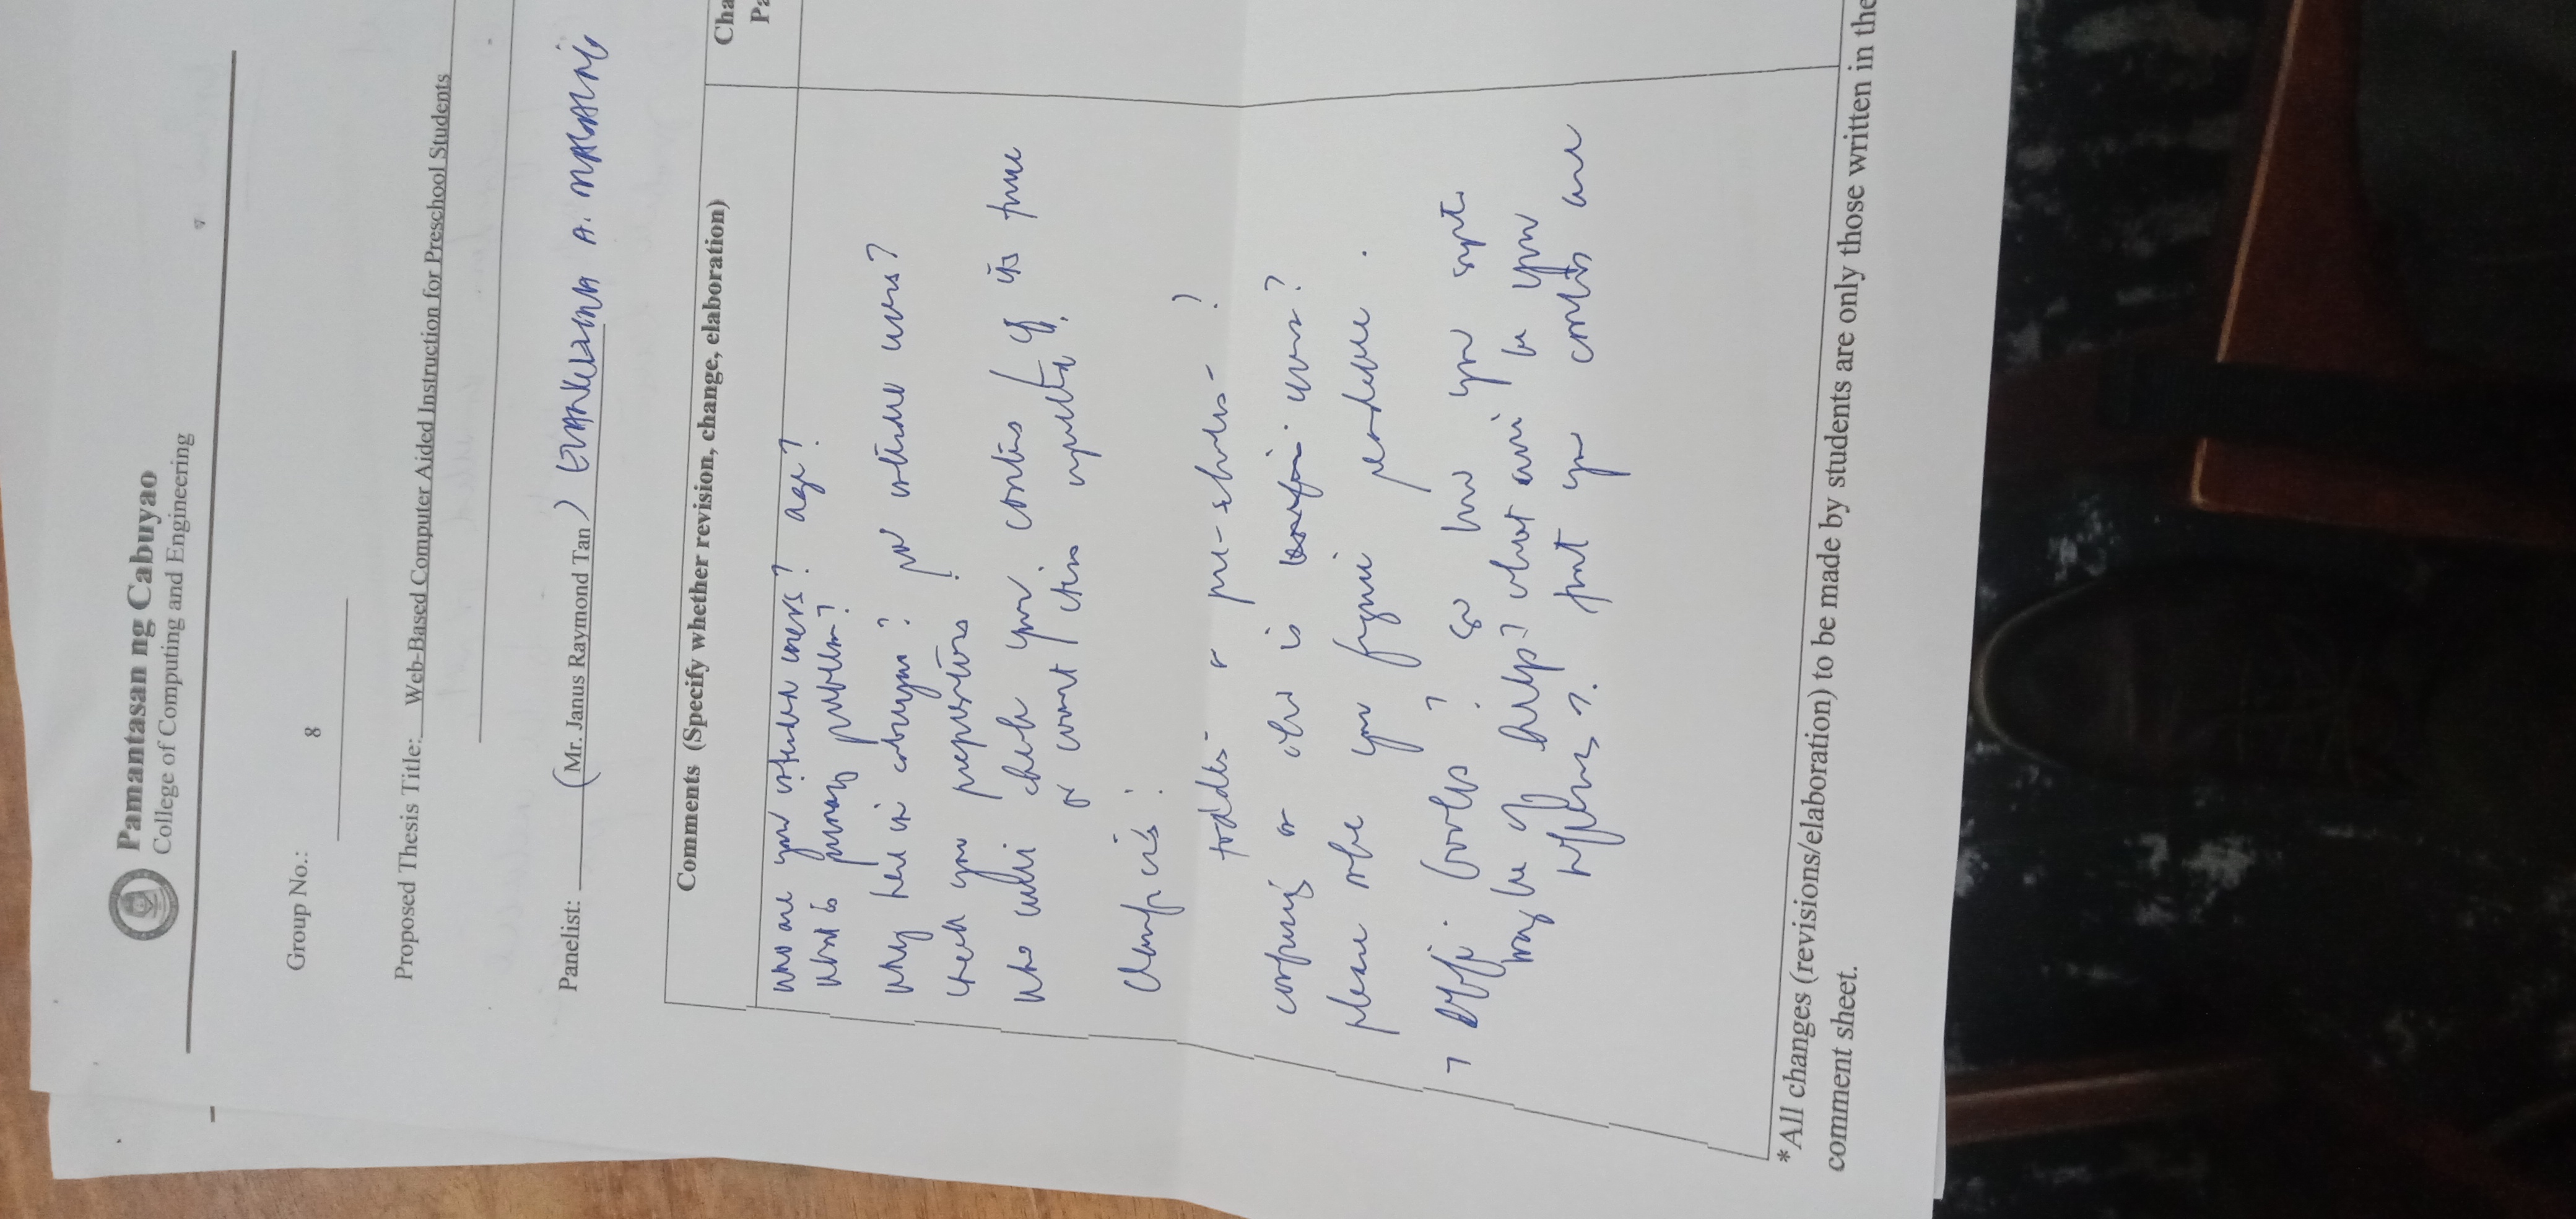 Pamantasan ng Cabuyao
College of Computing and Engineering
Group No.: 8
Proposed Thesis Title: Web-Based Computer Aided Instruction for Preschool Students
Panelist: (Mr. Janus Raymond Tan) A.
Comments (Specify whether revision, change, elaboration)
Cha
Pa
who are your intended users? age?
what is primary problem?
why here in cabuyao? intended users?
check your
who will check your / if its true
or
toddler or pre-schooler ?
or who is users?
please make your figure readable .
books? so how your
may be of help? what will be your
that your are
*All changes (revisions/elaboration) to be made by students are only those written in the
comment sheet.